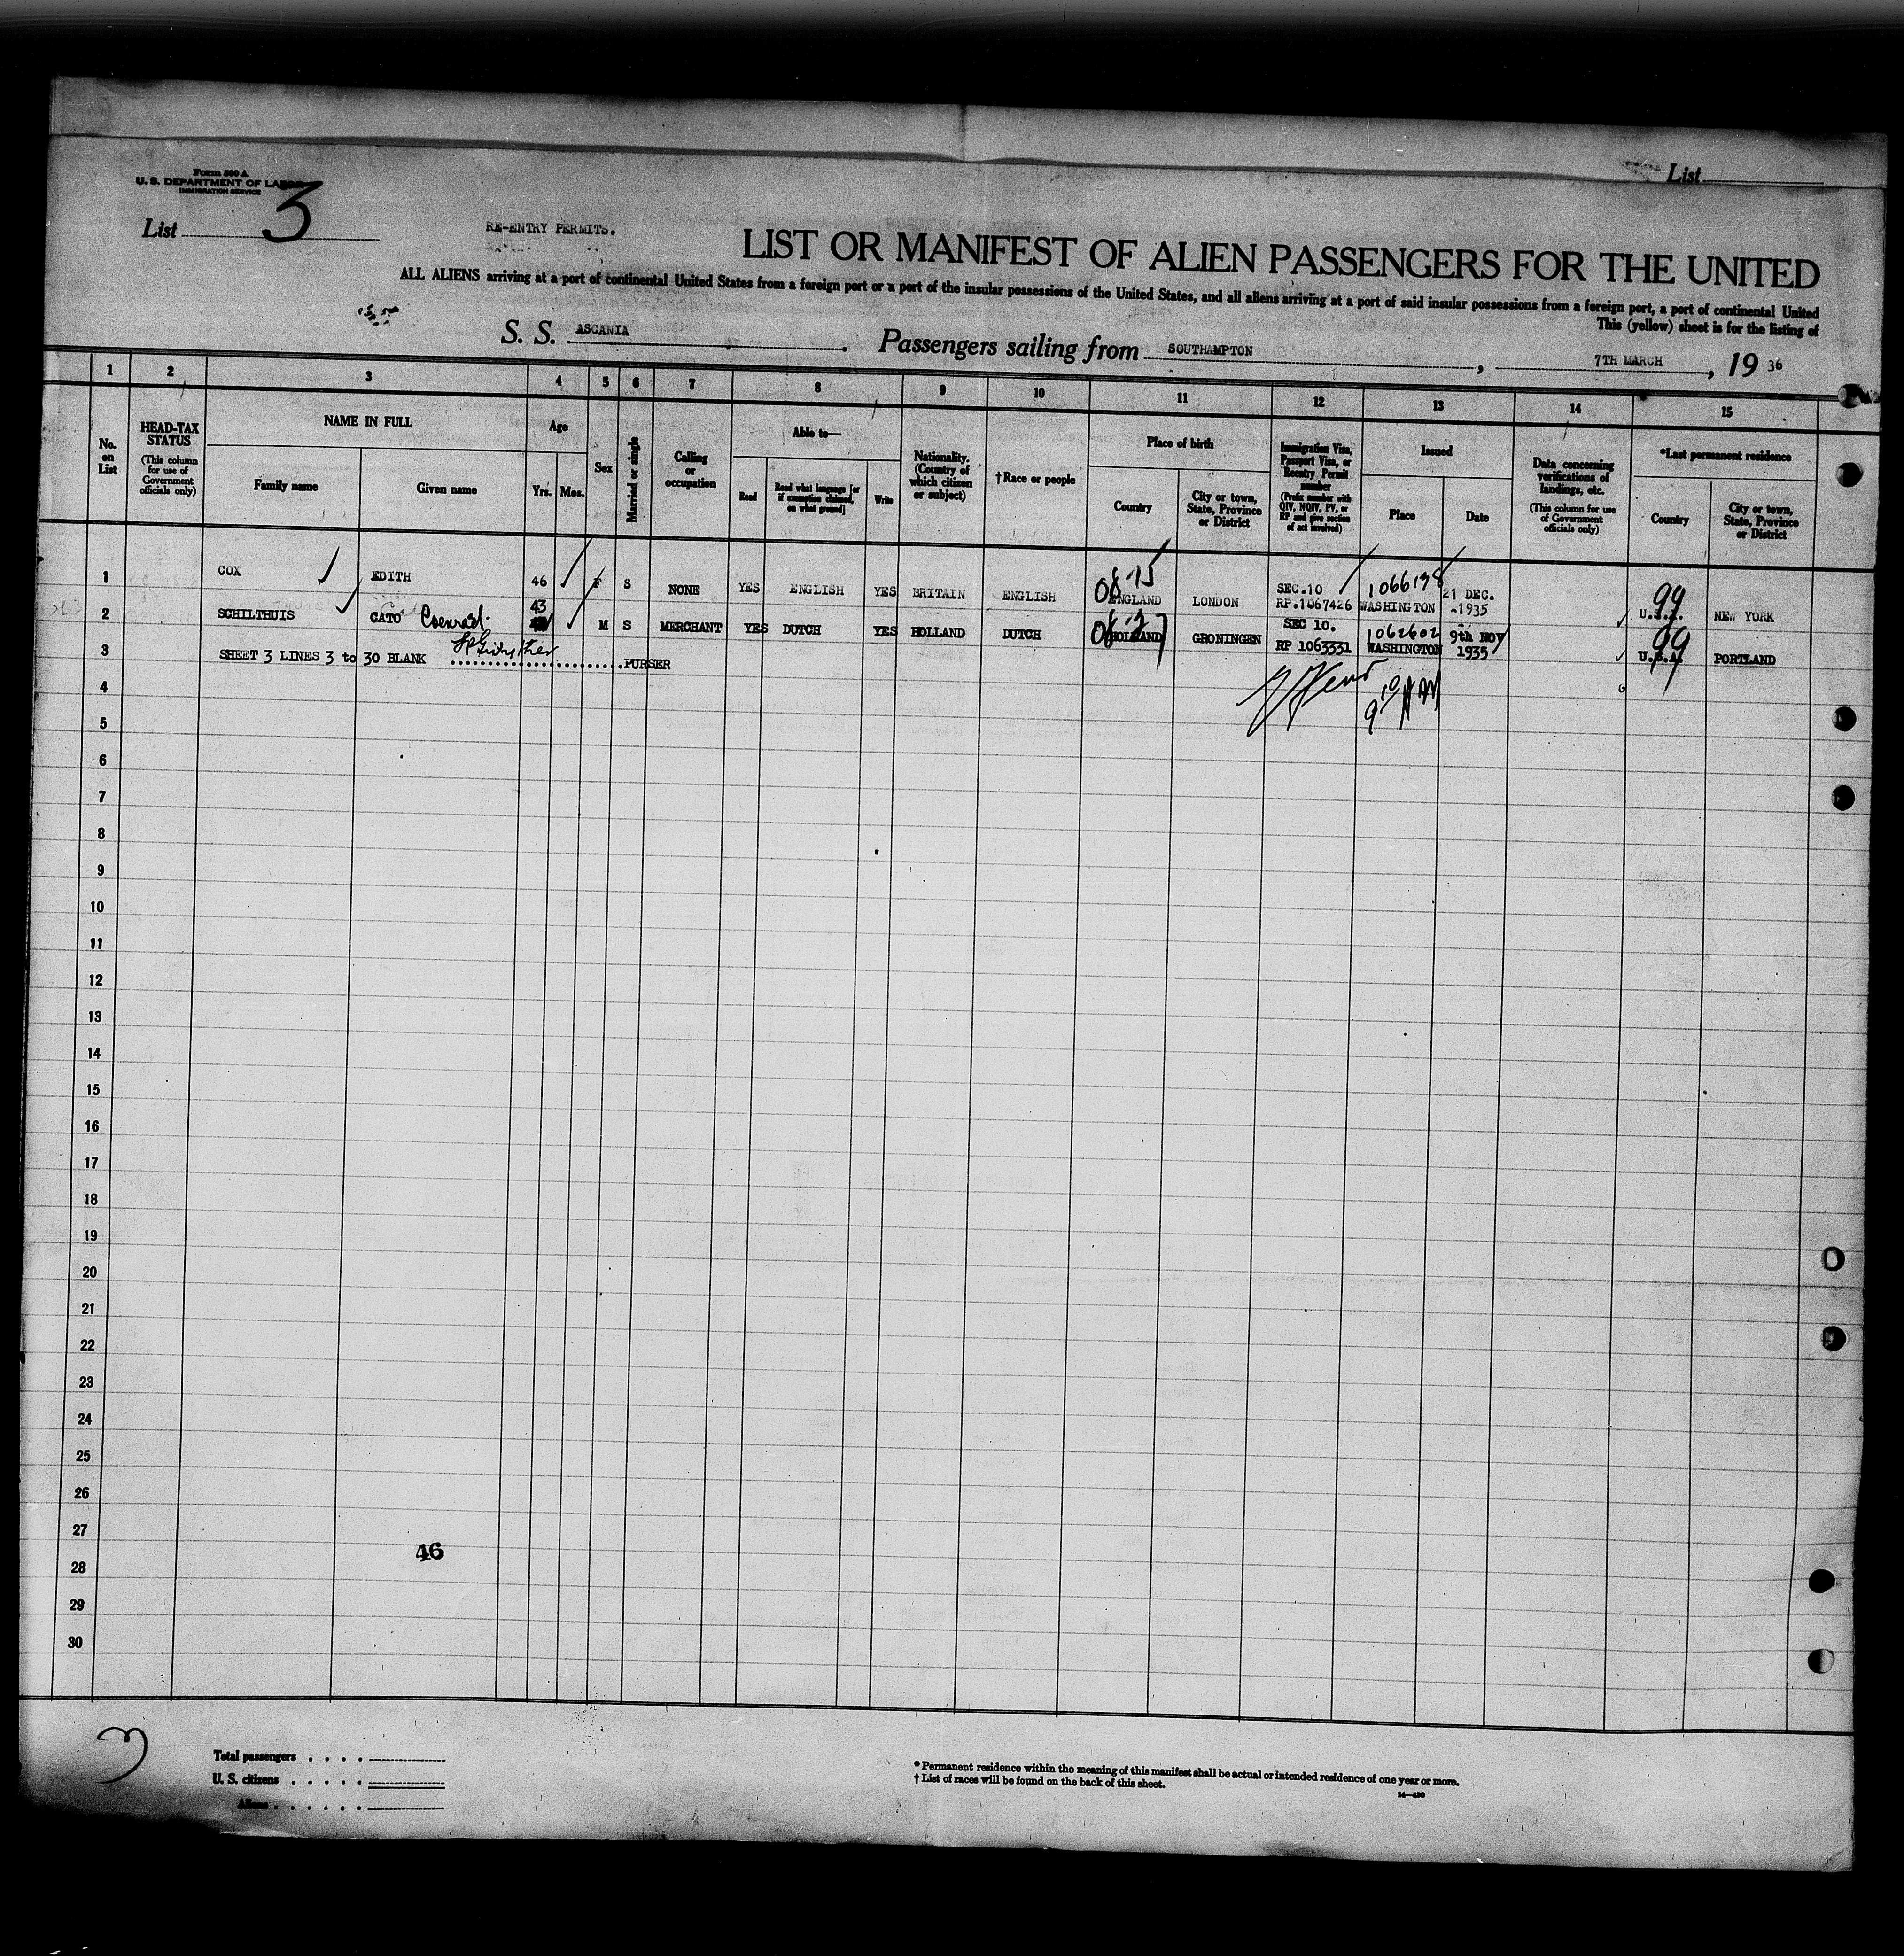 Form 500 A
U. S. DEPARTMENT OF LABOR
IMMIGRATION SERVICE
List
List 3
RE-ENTRY PERMITS.
LIST OR MANIFEST OF ALIEN PASSENGERS FOR THE UNITED
ALL ALIENS arriving at a port of continental United States from a foreign port or a port of the insular possessions of the United States, and all aliens arriving at a port of said insular possessions from a foreign port, a port of continental United
This (yellow) sheet is for the listing of
S. S. ASCANIA Passengers sailing from SOUTHAMPTON, 7TH MARCH, 19 36
1 2 3 4 5 6 7 8 9 10 11 12 13 14 15
No. on List
HEAD-TAX STATUS (This column for use of Government officials only)
NAME IN FULL
Family name
Given name
Age
Yrs. Mos.
Sex
Married or single
Calling or occupation
Able to—
Read
Read what language [or if exemption claimed, on what ground]
Write
Nationality. (Country of which citizen or subject)
†Race or people
Place of birth
Country
City or town, State, Province or District
Immigration Visa, Passport Visa, or Reentry Permit number (Prefix number with QIV, NQIV, PV, or RP and give section of act involved)
Issued
Place
Date
Data concerning verifications of landings, etc. (This column for use of Government officials only)
*Last permanent residence
Country
City or town, State, Province or District
1 COX EDITH 46 F S NONE YES ENGLISH YES BRITAIN ENGLISH 08-15 ENGLAND LONDON SEC.10 RP.1067426 1066138 WASHINGTON 21 DEC. 1935 99 U.S.A. NEW YORK
2 SCHILTHUIS CATO Coenrad. 43 M S MERCHANT YES DUTCH YES HOLLAND DUTCH HOLLAND GRONINGEN SEC 10. RP 1063331 1062602 WASHINGTON 9th NOV 1935 99 U.S.A. PORTLAND
3 SHEET 3 LINES 3 to 30 BLANK PURSER
4
5
6
7
8
9
10
11
12
13
14
15
16
17
18
19
20
21
22
23
24
25
26
27
46
28
29
30
3
Total passengers
U. S. citizens
Aliens
* Permanent residence within the meaning of this manifest shall be actual or intended residence of one year or more.
† List of races will be found on the back of this sheet.
14—430